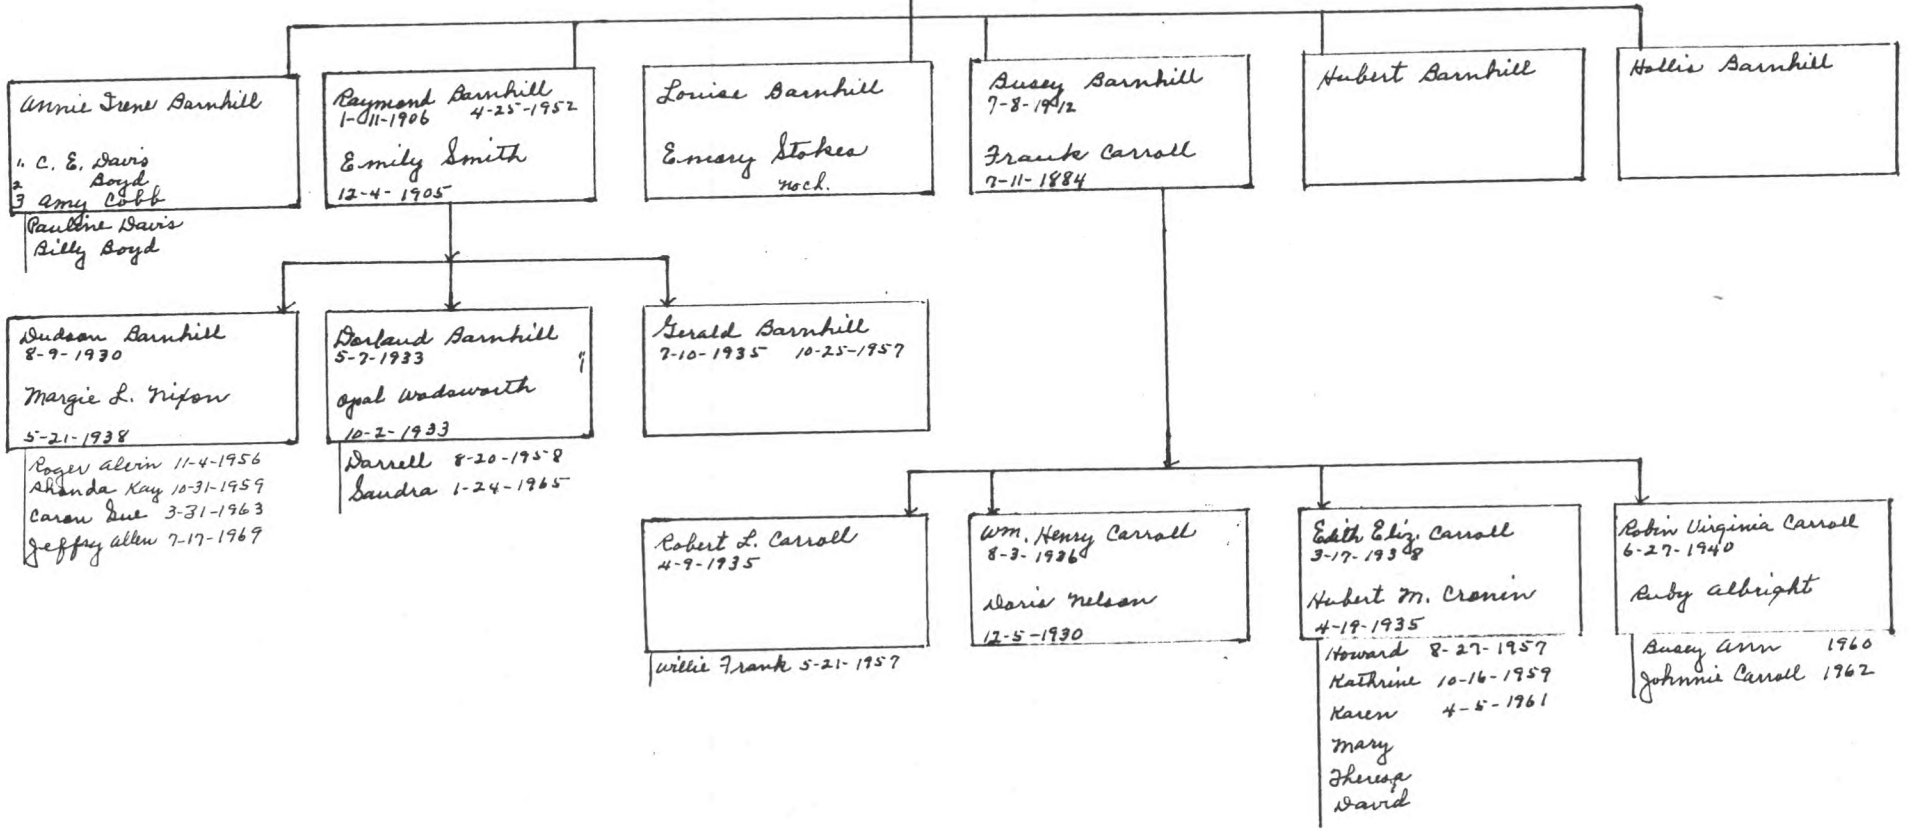 Annie Irene Barnhill
1. C. E. Davis
2 Boyd
3 Amy Cobb
Pauline Davis
Billy Boyd
Raymond Barnhill
1-11-1906 4-25-1952
Emily Smith
12-4-1905
Louise Barnhill
Emory Stokes
no ch.
Busey Barnhill
7-8-1912
Frank Carroll
7-11-1884
Hubert Barnhill
Hollis Barnhill
Dudson Barnhill
8-9-1930
Margie L. Nixon
5-21-1938
Roger Alvin 11-4-1956
Shonda Kay 10-31-1959
Caron Sue 3-31-1963
Jeffry Allen 7-17-1969
Dorland Barnhill
5-7-1933
Opal Wadsworth
10-2-1933
Darrell 8-20-1958
Sandra 1-24-1965
Gerald Barnhill
7-10-1935 10-25-1957
Robert L. Carroll
4-9-1935
Willie Frank 5-21-1957
Wm. Henry Carroll
8-3-1936
Doris Nelson
12-5-1930
Edith Eliz. Carroll
3-17-1938
Hubert M. Cronin
4-19-1935
Howard 8-27-1957
Kathrine 10-16-1959
Karen 4-5-1961
Mary
Theresa
David
Robin Virginia Carroll
6-27-1940
Ruby Albright
Busey Ann 1960
Johnnie Carroll 1962